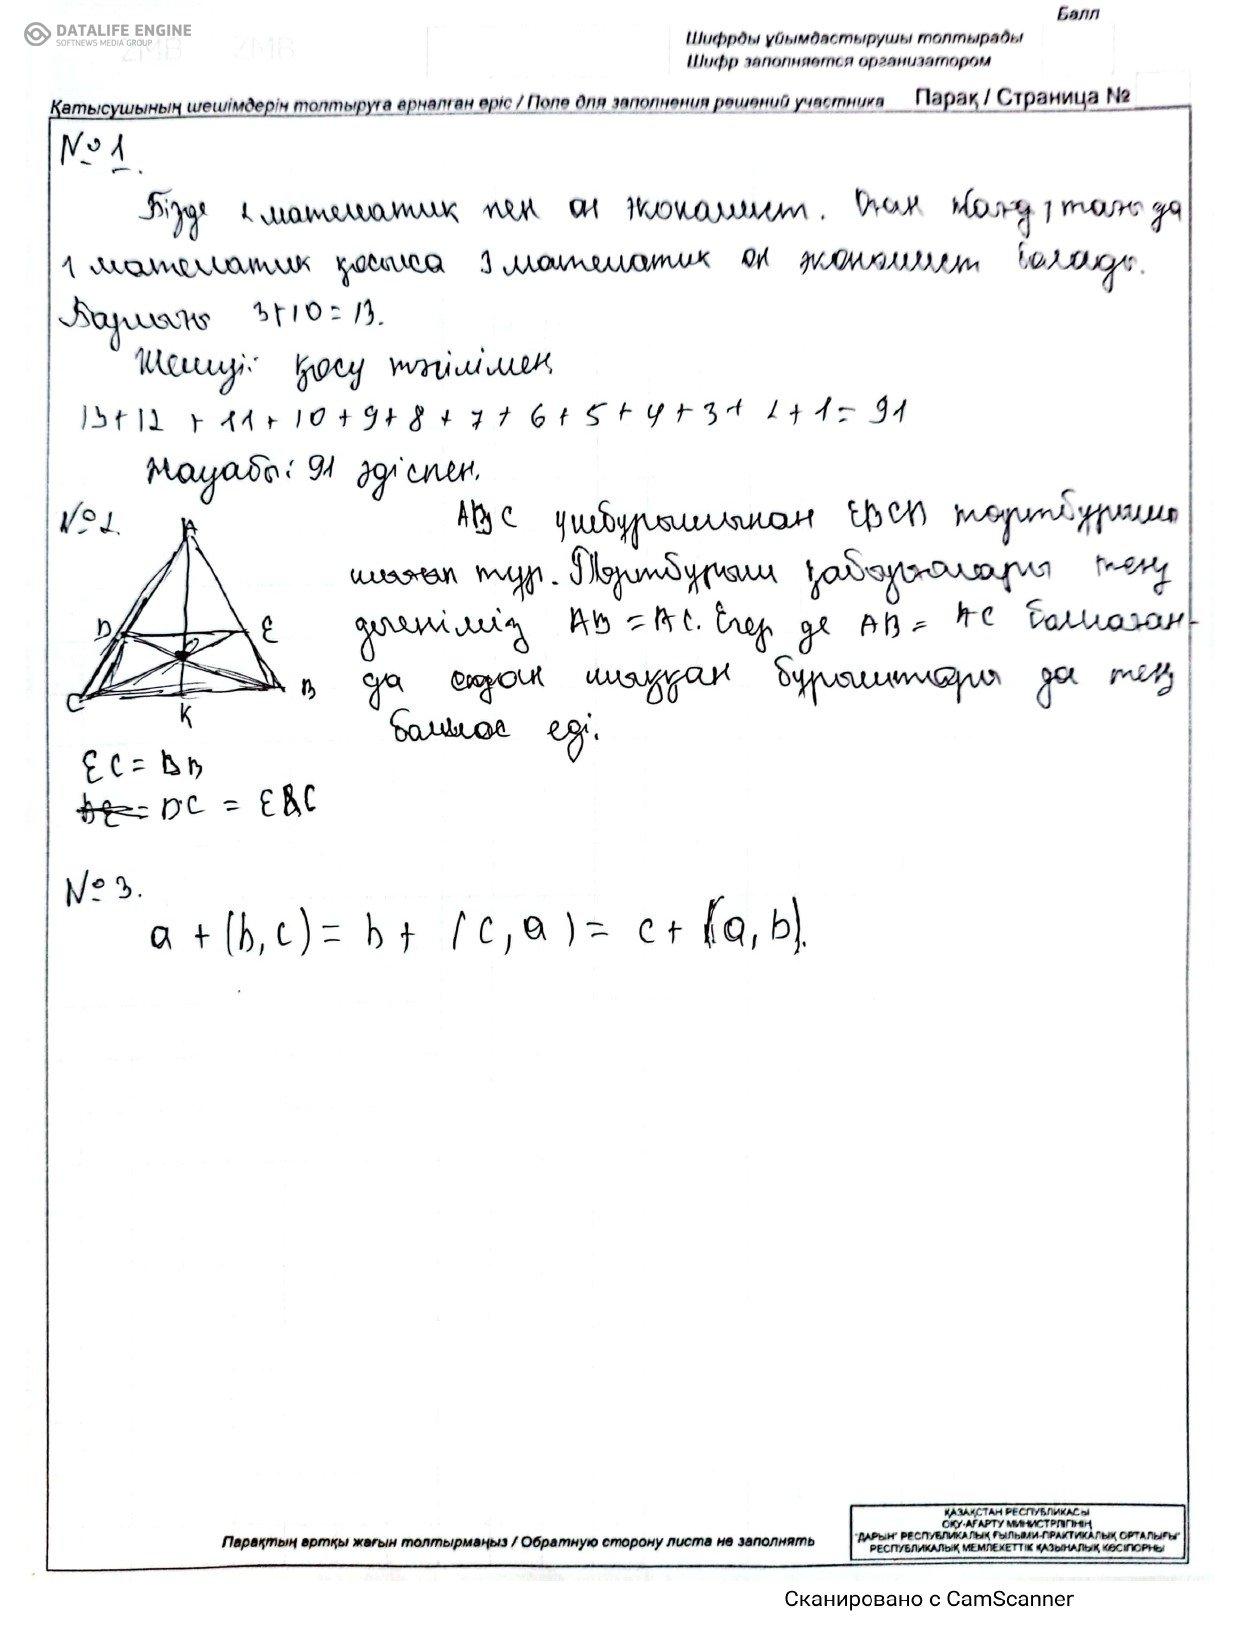 DATALIFE ENGINE
SOFTNEWS MEDIA GROUP
Балл
Шифрды ұйымдастырушы толтырады
Шифр заполняется организатором
Қатысушының шешімдерін толтыруға арналған өріс / Поле для заполнения решений участника Парақ / Страница №
№ 1.
Бізде 2 математик пен он экономист.
1 математик қосыса 3 математик он экономист болады.
Барлығы 3+10=13.
Шешуі: қосу тәсілімен
13+12+11+10+9+8+7+6+5+4+3+2+1=91
Жауабы: 91 әдіспен.
№ 2. A
ABC үшбұрышынан EBCD төртбұрышы
шығып тұр. Төртбұрыш қабырғалары тең
D E
дегеніміз AB = AC. Егер де AB = AC болмаған-
C B
да одан шыққан бұрыштары да тең
K
болмас еді.
EC = DB
DC = EBC
№ 3.
a + (b, c) = b + (c, a) = c + (a, b).
Парақтың артқы жағын толтырмаңыз / Обратную сторону листа не заполнять
ҚАЗАҚСТАН РЕСПУБЛИКАСЫ
ОҚУ-АҒАРТУ МИНИСТРЛІГІНІҢ
"ДАРЫН" РЕСПУБЛИКАЛЫҚ ҒЫЛЫМИ-ПРАКТИКАЛЫҚ ОРТАЛЫҒЫ"
РЕСПУБЛИКАЛЫҚ МЕМЛЕКЕТТІК ҚАЗЫНАЛЫҚ КӘСІПОРНЫ
Сканировано с CamScanner